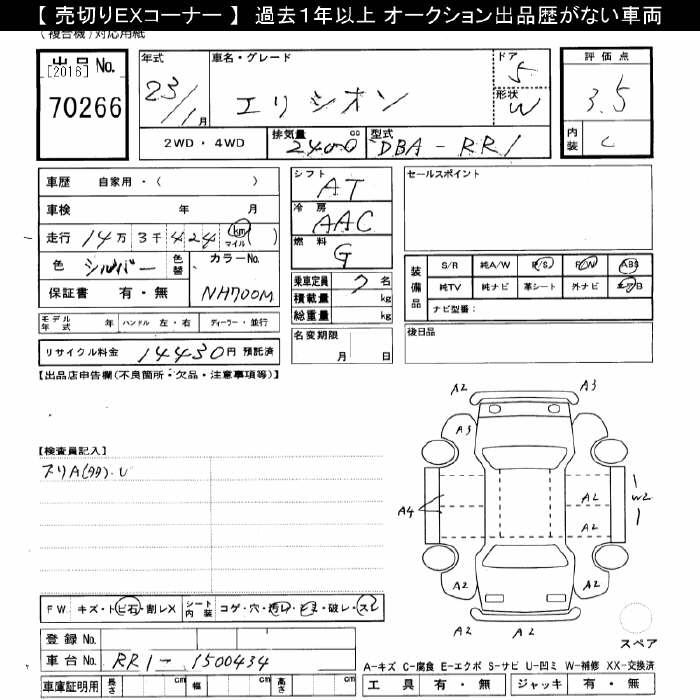 【 売切りEXコーナー 】 過去1年以上 オークション出品歴がない車両
(複合機)対応用紙
出品No.
[2016]
70266
年式 23/1月
車名・グレード エリシオン
ドア 5
形状 W
2WD ・ 4WD
排気量 2400 cc
型式 DBA-RR1
評価点 3.5
内装 C
車歴 自家用・( )
車検 年 月
走行 14万 3千 424 km マイル ( )
色 シルバー 色替 カラーNo. NH700M
保証書 有・無
シフト AT
冷房 AAC
燃料 G
乗車定員 7 名
積載量 kg
総重量 kg
名変期限 月 日
セールスポイント
装備品 S/R 純A/W P/S P/W ABS
純TV 純ナビ 革シート 外ナビ エアB
ナビ型番:
後日品
モデル年式 年 ハンドル 左・右 ディーラー・並行
リサイクル料金 14430円 預託済
【出品店申告欄(不良箇所・欠品・注意事項等)】
【検査員記入】
A2 A3
A3
A4 A2 W2
A2
A2 A2
A2 A2
スペア
FW キズ・トビ石・割レX シート内装 コゲ・穴・汚レ・シミ・破レ・スレ
登録No.
車台No. RR1-1500434
車庫証明用 長さ cm 幅 cm 高さ cm
A-キズ C-腐食 E-エクボ S-サビ U-凹ミ W-補修 XX-交換済
工具 有・無 ジャッキ 有・無